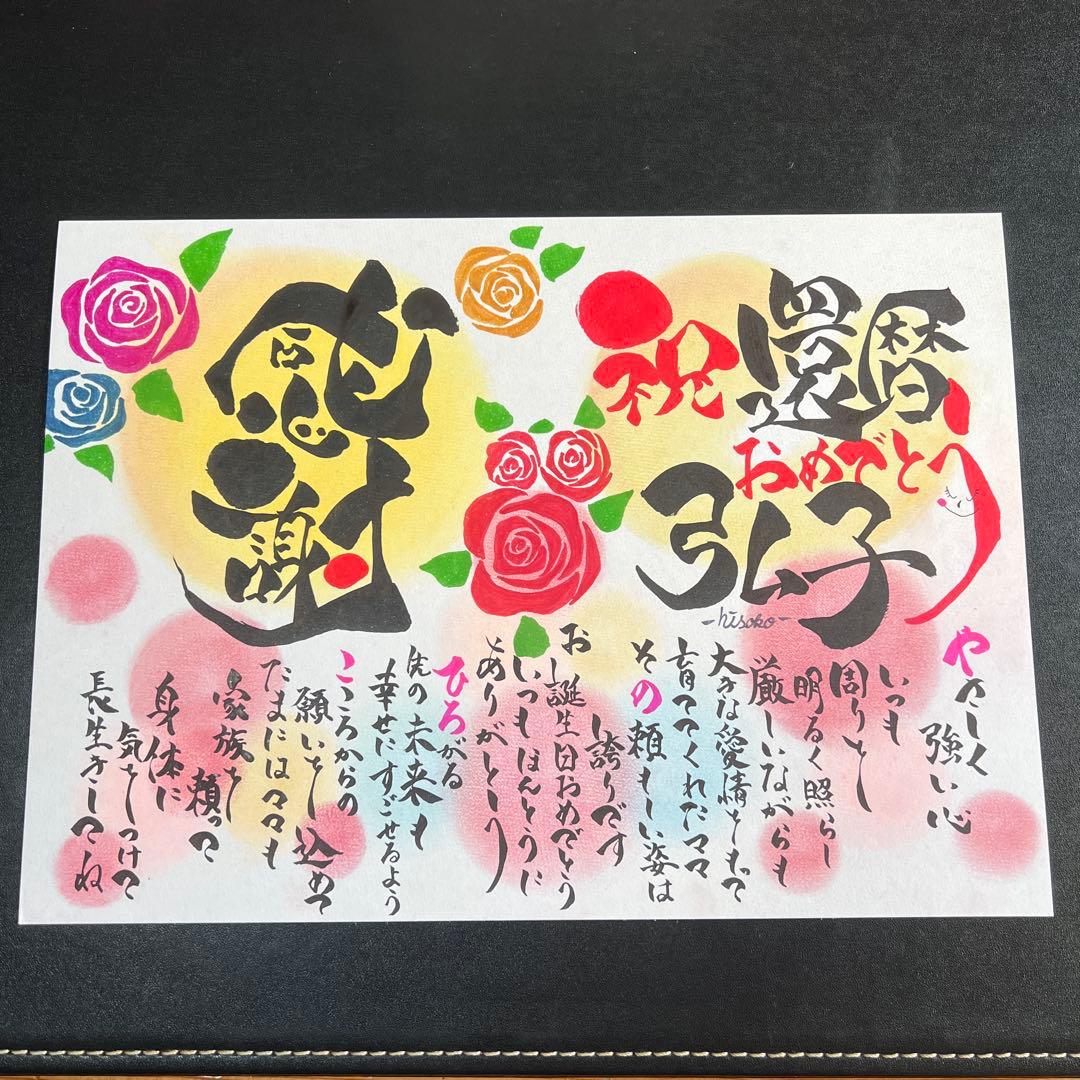 祝
還暦
おめでとう
弘子
-hisoko-
感謝
やさしく
強い心
いつも
周りを
明るく照らし
厳しいながらも
大きな愛情をもって
育ててくれたママ
その頼もしい姿は
お
し誇りです
誕生日おめでとう
いつもほんとうに
ありがとう
ひろがる
先の未来も
幸せにすごせるよう
こころからの
願いをし込めて
たまにはママも
家族を
頼って
身体に
気をつけて
長生きしてね